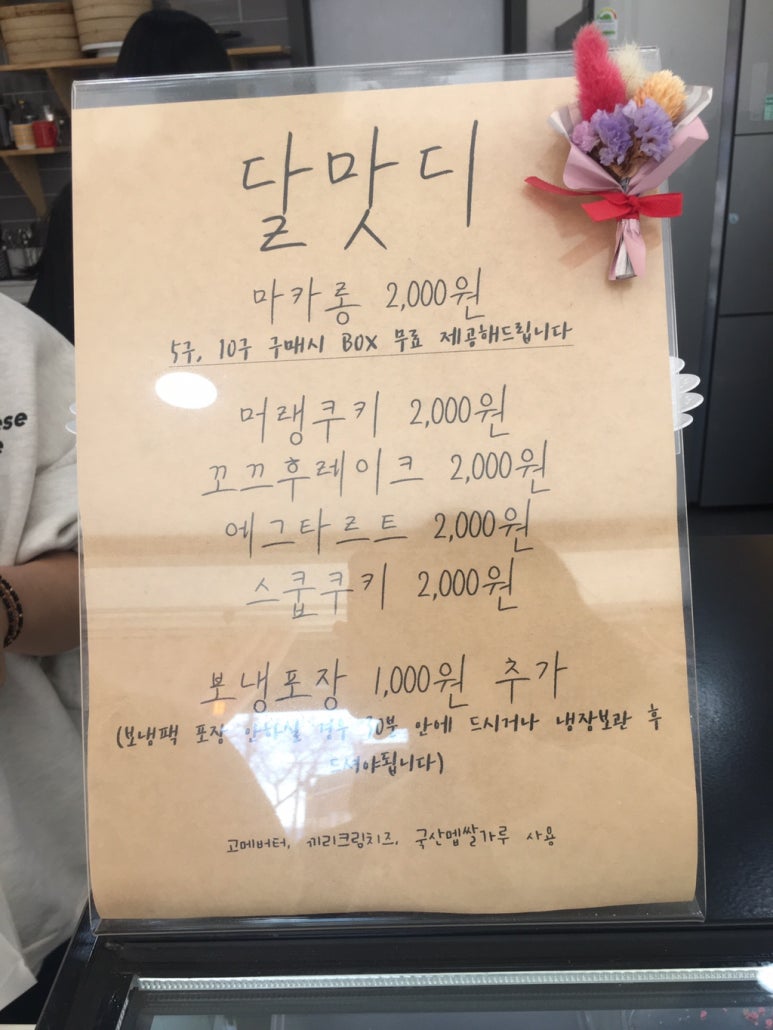 달맛디
마카롱 2,000원
5구, 10구 구매시 BOX 무료 제공해드립니다
머랭쿠키 2,000원
꼬끄후레이크 2,000원
에그타르트 2,000원
스쿱쿠키 2,000원
보냉포장 1,000원 추가
(보냉팩 포장 안하실 경우 30분 안에 드시거나 냉장보관 후
드셔야됩니다)
고메버터, 끼리크림치즈, 국산멥쌀가루 사용